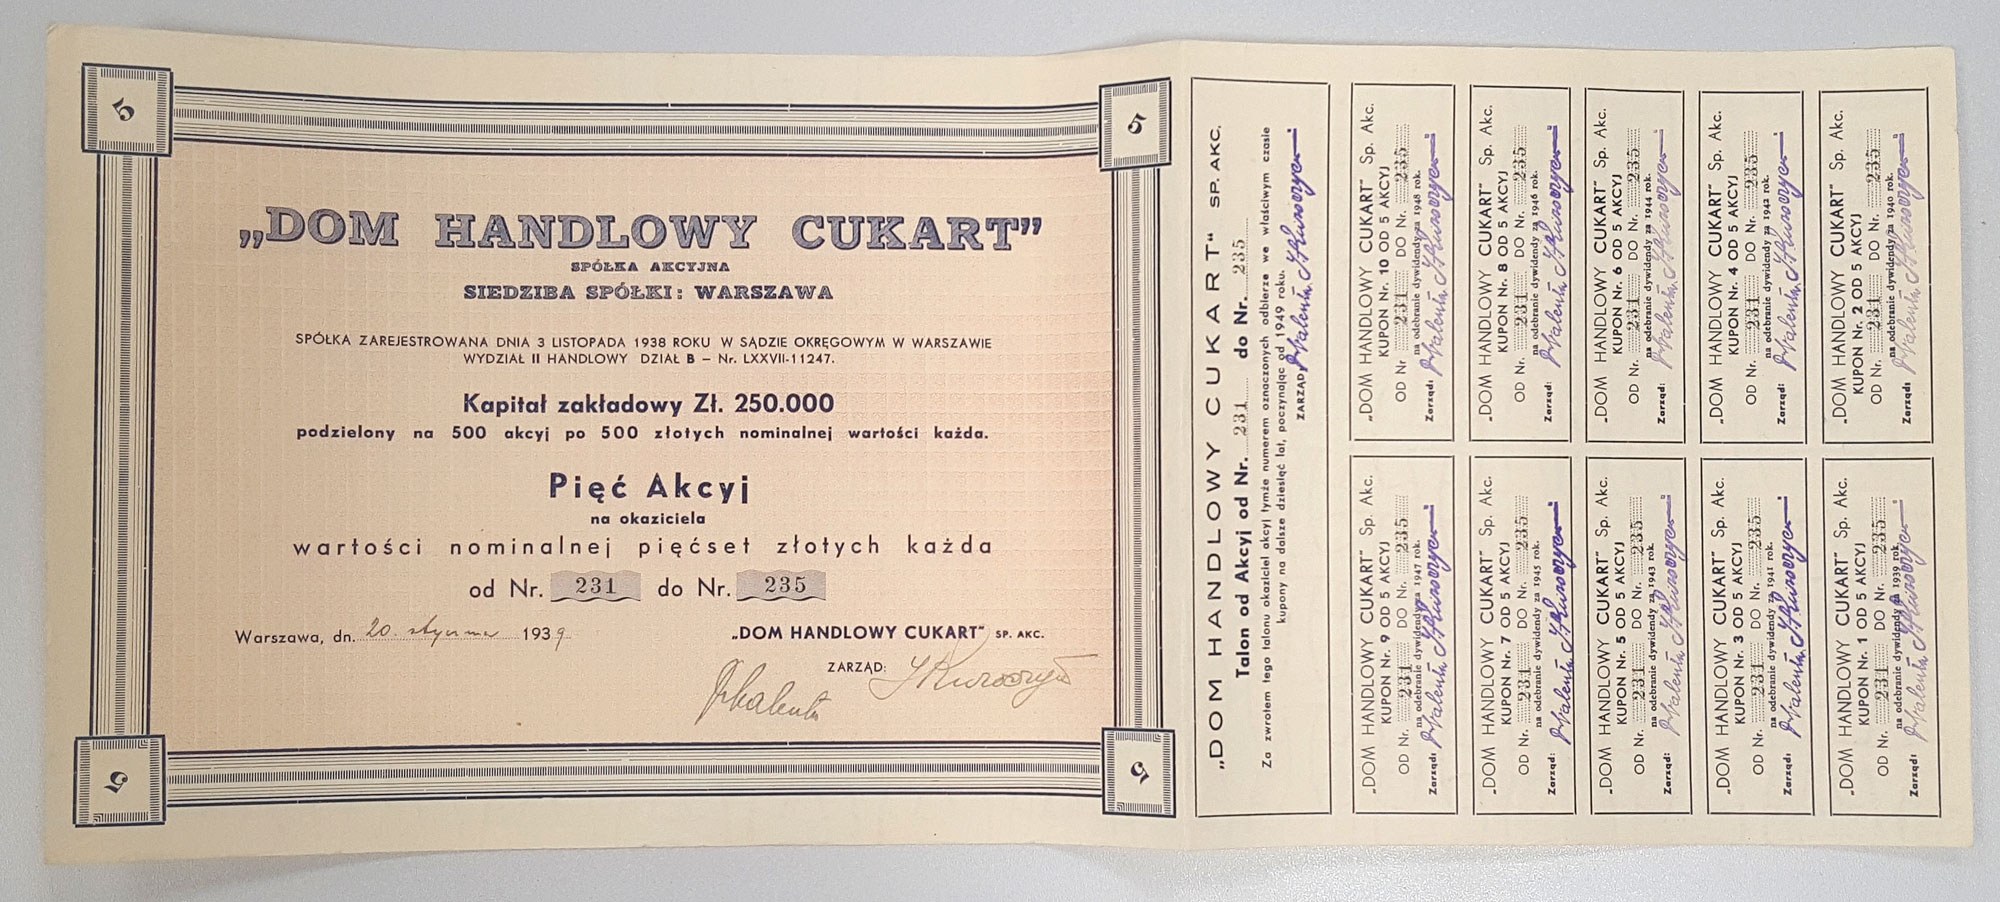 5
5
„DOM HANDLOWY CUKART”
SPÓŁKA AKCYJNA
SIEDZIBA SPÓŁKI: WARSZAWA
SPÓŁKA ZAREJESTROWANA DNIA 3 LISTOPADA 1938 ROKU W SĄDZIE OKRĘGOWYM W WARSZAWIE
WYDZIAŁ II HANDLOWY DZIAŁ B – Nr. LXXVII-11247.
Kapitał zakładowy Zł. 250.000
podzielony na 500 akcyj po 500 złotych nominalnej wartości każda.
Pięć Akcyj
na okaziciela
wartości nominalnej pięćset złotych każda
od Nr. 231 do Nr. 235
Warszawa, dn. 20. stycznia 1939
„DOM HANDLOWY CUKART” SP. AKC.
ZARZĄD:
5
5
„DOM HANDLOWY CUKART” SP. AKC.
Talon od Akcyj od Nr. 231 do Nr. 235
Za zwrotem tego talonu okaziciel akcyj tymże numerem oznaczonych odbierze we właściwym czasie
kupony na dalsze dziesięć lat, poczynając od 1949 roku.
ZARZĄD
„DOM HANDLOWY CUKART” Sp. Akc.
KUPON Nr. 10 OD 5 AKCYJ
OD Nr. 231 DO Nr. 235
na odebranie dywidendy za 1948 rok.
Zarząd:
„DOM HANDLOWY CUKART” Sp. Akc.
KUPON Nr. 8 OD 5 AKCYJ
OD Nr. 231 DO Nr. 235
na odebranie dywidendy za 1946 rok.
Zarząd:
„DOM HANDLOWY CUKART” Sp. Akc.
KUPON Nr. 6 OD 5 AKCYJ
OD Nr. 231 DO Nr. 235
na odebranie dywidendy za 1944 rok.
Zarząd:
„DOM HANDLOWY CUKART” Sp. Akc.
KUPON Nr. 4 OD 5 AKCYJ
OD Nr. 231 DO Nr. 235
na odebranie dywidendy za 1942 rok.
Zarząd:
„DOM HANDLOWY CUKART” Sp. Akc.
KUPON Nr. 2 OD 5 AKCYJ
OD Nr. 231 DO Nr. 235
na odebranie dywidendy za 1940 rok.
Zarząd:
„DOM HANDLOWY CUKART” Sp. Akc.
KUPON Nr. 9 OD 5 AKCYJ
OD Nr. 231 DO Nr. 235
na odebranie dywidendy za 1947 rok.
Zarząd:
„DOM HANDLOWY CUKART” Sp. Akc.
KUPON Nr. 7 OD 5 AKCYJ
OD Nr. 231 DO Nr. 235
na odebranie dywidendy za 1945 rok.
Zarząd:
„DOM HANDLOWY CUKART” Sp. Akc.
KUPON Nr. 5 OD 5 AKCYJ
OD Nr. 231 DO Nr. 235
na odebranie dywidendy za 1943 rok.
Zarząd:
„DOM HANDLOWY CUKART” Sp. Akc.
KUPON Nr. 3 OD 5 AKCYJ
OD Nr. 231 DO Nr. 235
na odebranie dywidendy za 1941 rok.
Zarząd:
„DOM HANDLOWY CUKART” Sp. Akc.
KUPON Nr. 1 OD 5 AKCYJ
OD Nr. 231 DO Nr. 235
na odebranie dywidendy za 1939 rok.
Zarząd: